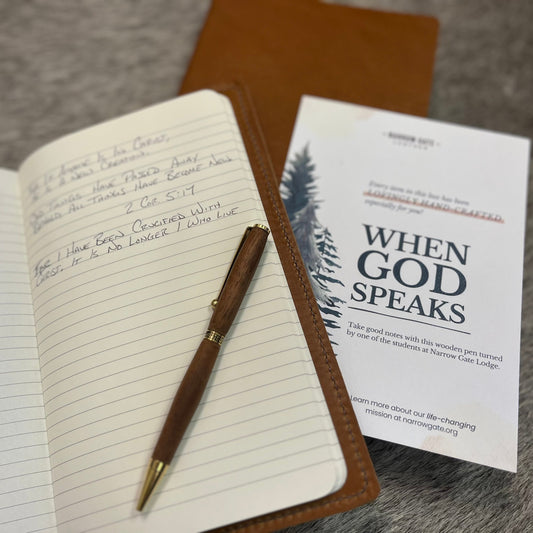 If Anyone Is In Christ,
He Is A New Creation.
Old Things Have Passed Away
Behold All Things Have Become New
2 Cor. 5:17
For I Have Been Crucified With
Christ. It Is No Longer I Who Live
NARROW GATE
LEATHER
Every item in this box has been
LOVINGLY HAND-CRAFTED
especially for you!
WHEN
GOD
SPEAKS
Take good notes with this wooden pen turned
by one of the students at Narrow Gate Lodge.
Learn more about our life-changing
mission at narrowgate.org